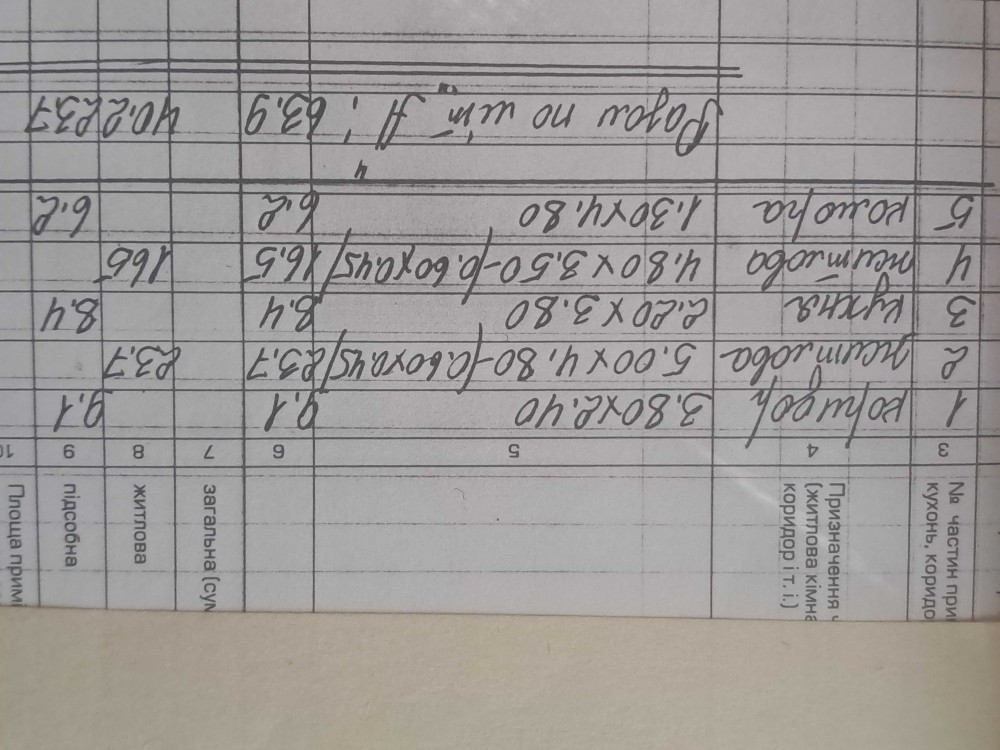 № частин при
кухонь, коридо
Призначення ч
(житлова кімна
коридор і т. і.)
загальна (сум
житлова
підсобна
Площа примі
3 4 5 6 7 8 9 10
1 коридор 3.80x2.40 9.1 9.1
2 житлова 5.00x4.80-(0.60x0.45) 23.7 23.7
3 кухня 2.20x3.80 8.4 8.4
4 житлова 4.80x3.50-(0.60x0.45) 16.5 16.5
5 комора 1.30x4.80 6.2 6.2
Разом по літ. "А" 63.9 40.2 23.7